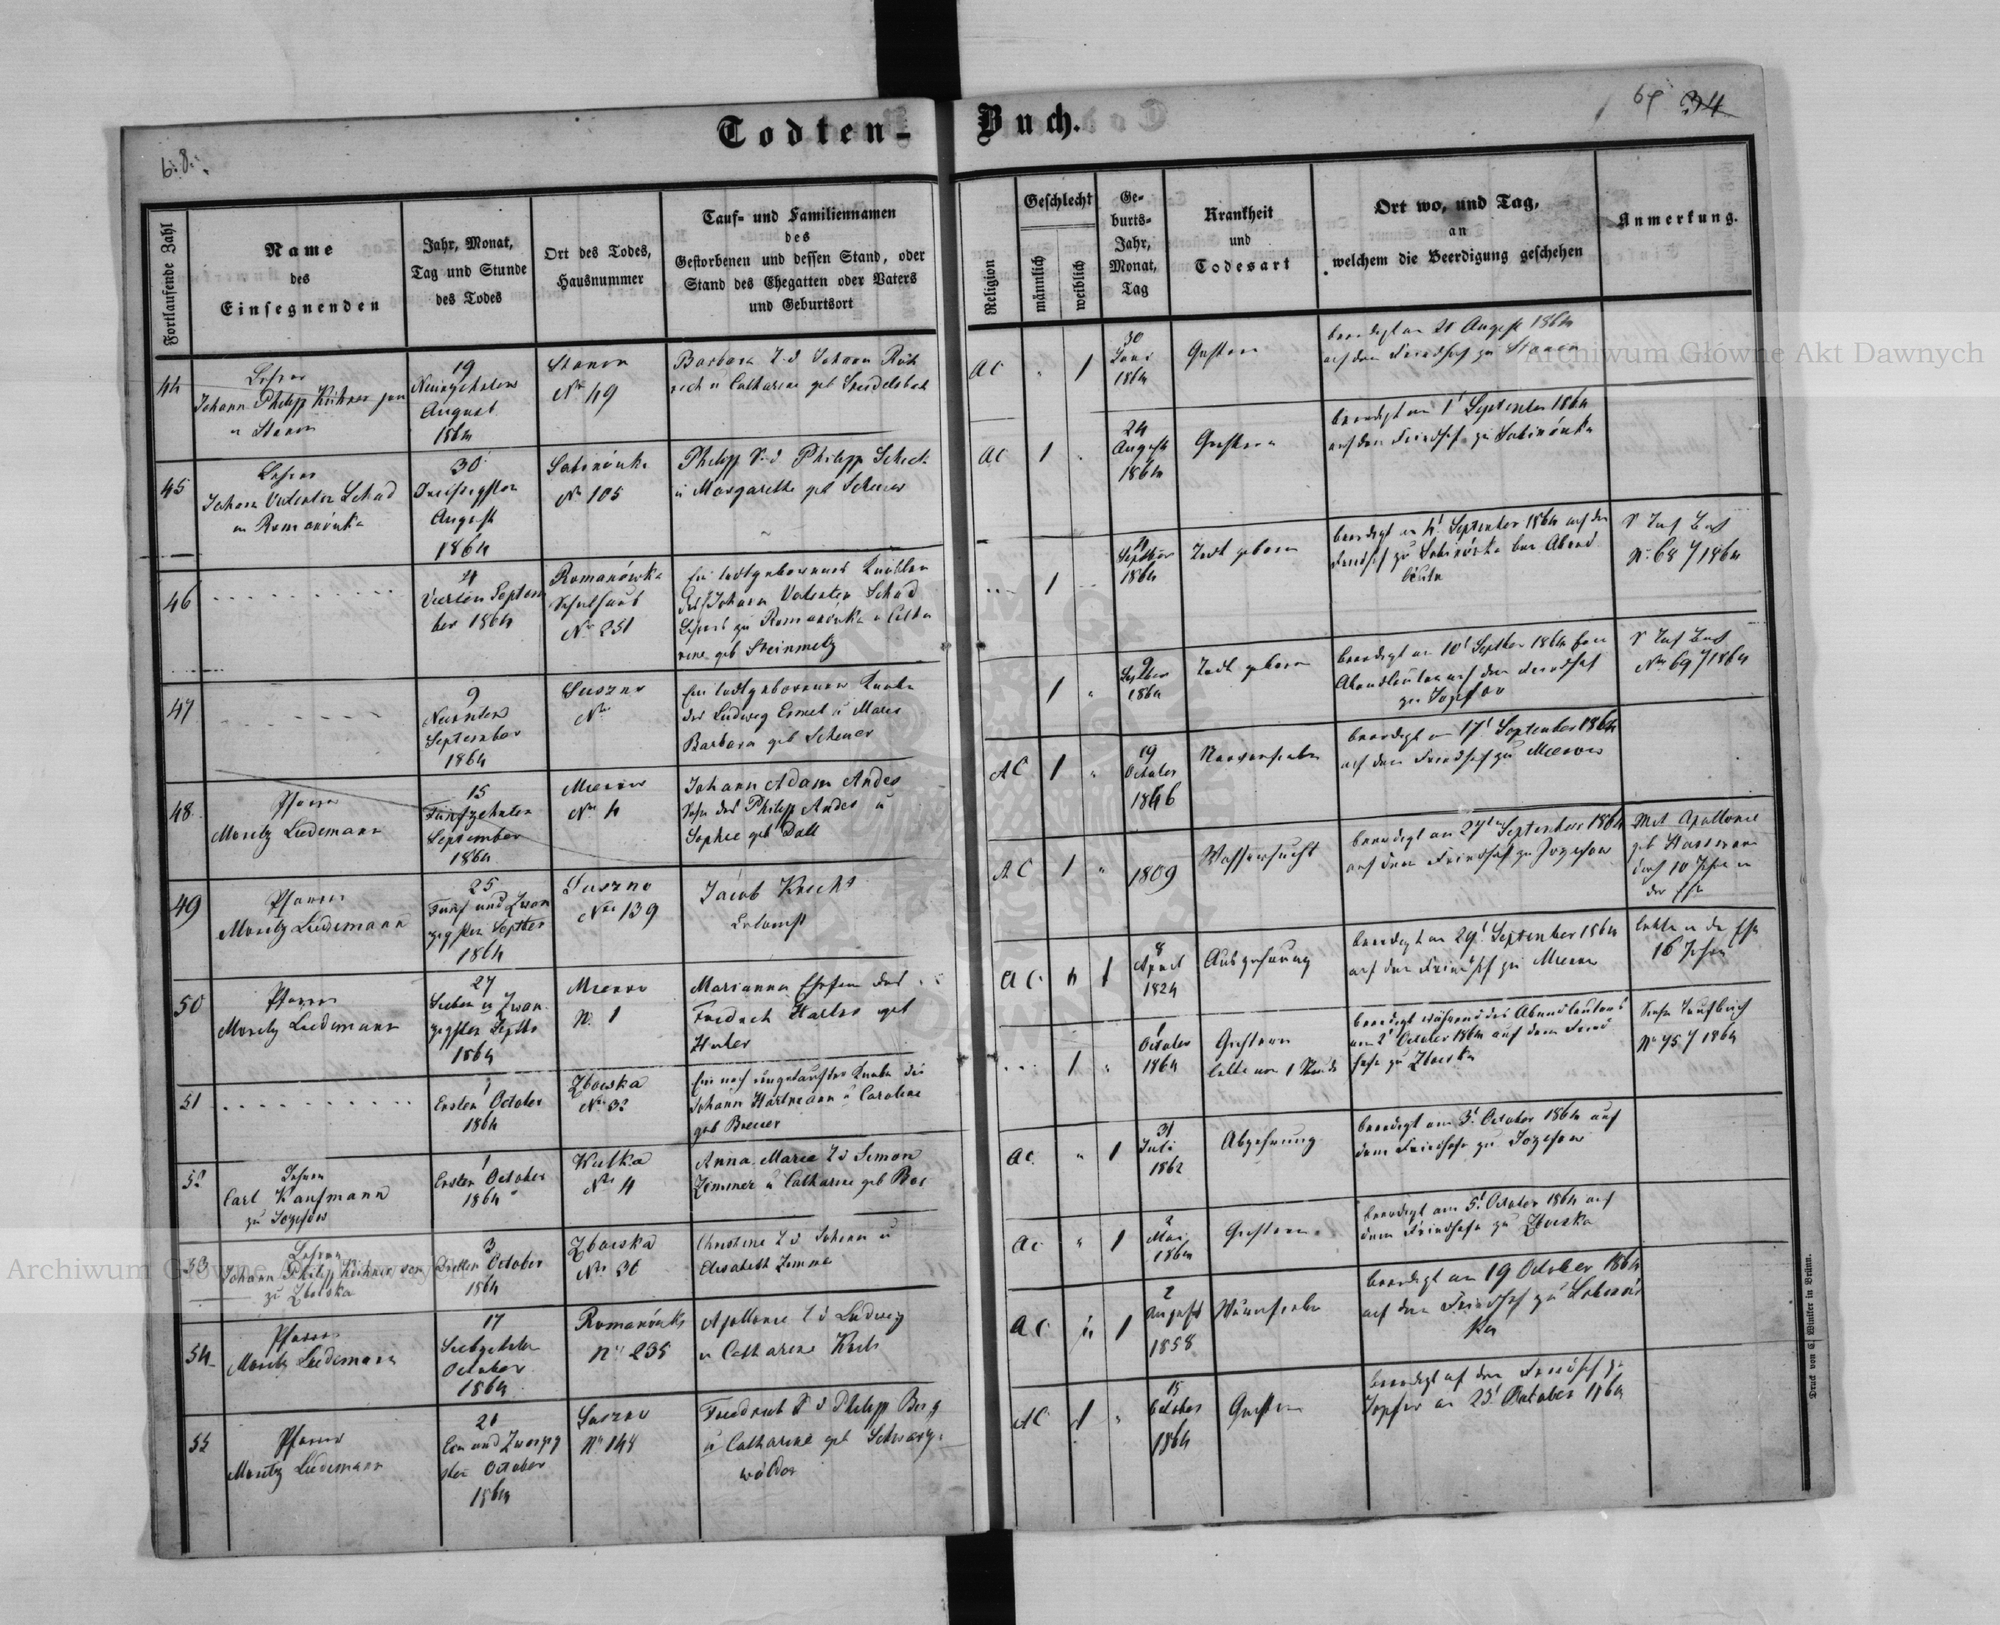 6.8.
Todten-
Buch.
34
Fortlaufende Zahl
Name
des
Einsegnenden
Jahr, Monat,
Tag und Stunde
des Todes
Ort des Todes,
Hausnummer
Tauf- und Familiennamen
des
Gestorbenen und dessen Stand, oder
Stand des Ehegatten oder Vaters
und Geburtsort
Religion
Geschlecht
männlich
weiblich
Ge-
burts-
Jahr,
Monat,
Tag
Krankheit
und
Todesart
Ort wo, und Tag,
an
welchem die Beerdigung geschehen
Anmerkung.
44
Lehrer
Johann Philipp Kühner jun
Stanin
19
Neunzehnten
August
1864
Stanin
Nr 49
Barbara T. d. Johann
u Catharine geb
AC
1
30
Juni
1864
beerdigt am 21 August 1864
auf dem Friedhof zu Stanin
45
Lehrer
Johann Valentin Schad
in Romanówka
30
Dreißigsten
August
1864
Sabinówka
Nr 105
Philipp S. d. Philipp Scheck
u Margarethe geb Scheuer
AC
1
24
August
1864
beerdigt am 1 September 1864
auf dem Friedhof zu Sabinówka
46
4
Vierten Septem
ber 1864
Romanówka
Schulhaus
Nr 251
Ein todtgeborenes Knäblein
des Johann Valentin Schad
Lehrers zu Romanówka u Catha
rine geb Steinmetz
1
4
September
1864
Todt geboren
beerdigt am 4 September 1864 auf dem
Friedhof zu Sabinówka beim Abend
läuten
Nr. 68 / 1864
47
9
Neunten
September
1864
Suszno
Nr
Ein todtgeborener Knabe
des Ludwig Ermel u Maria
Barbara geb Scheuer
1
9
Septber
1864
Todt geboren
beerdigt am 10 Septber 1864 beim
Abendläuten auf dem Friedhof
zu Jozefow
Nr 69 / 1864
48
Pfarrer
Moritz Liedemann
15
Fünfzehnten
September
1864
Mierow
Nr 4
Johann Adam Andes
Sohn des Philipp Andes u
Sophie geb Doll
AC
1
19
October
1846
Nervenfieber
beerdigt am 17 September 1864
auf dem Friedhof zu Mierow
49
Pfarrer
Moritz Liedemann
25
Fünf und Zwan
zigsten Septber
1864
Suszno
Nr 139
Jacob Knecht
AC
1
1809
Wassersucht
beerdigt am 27 September 1864
auf dem Friedhof zu Jozefow
Mit Apollonie
durch 10 Jahre in
der Ehe
50
Pfarrer
Moritz Liedemann
27
Sieben u Zwan
zigsten Septbr
1864
Mierow
Nr 1
Marianna Ehefrau des
Friedrich Harlos geb
AC
1
8
April
1824
Auszehrung
beerdigt am 29 September 1864
auf dem Friedhof zu Mierow
lebte in der Ehe
16 Jahre
51
1
Ersten October
1864
Zboiska
Nr 32
Ein noch ungetaufter Knabe des
Johann Hartmann u Caroline
geb Breuer
1
1
October
1864
lebte nur 1 Stunde
beerdigt während des Abendläutens
am 2 October 1864 auf dem Fried
hofe zu Zboiska
Siehe Taufbuch
Nr 75 / 1864
52
Lehrer
Carl Kaufmann
zu Jozefow
1
Ersten October
1864
Kutka
Nr 4
Anna Marie T. d. Simon
Zimmer u Catharine geb
AC
1
31
Juli
1862
Abzehrung
beerdigt am 3 October 1864 auf
dem Friedhofe zu Jozefow
53
Lehrer
Johann Philipp Kühner sen
zu Zboiska
3
Dritten October
1864
Zboiska
Nr 36
Christine T. d. Johann u
Elisabeth Zimmer
AC
1
2
Mai
1864
beerdigt am 5 October 1864 auf
dem Friedhofe zu Zboiska
54
Pfarrer
Moritz Liedemann
17
Siebzehnten
October
1864
Romanówka
Nr 235
Apollonie T. d. Ludwig
u Catharine
AC
1
2
August
1858
beerdigt am 19 October 1864
auf dem Friedhof zu Sabinów
ka
55
Pfarrer
Moritz Liedemann
21
Ein und Zwanzig
sten October
1864
Suszno
Nr 148
Friedrich S. d. Philipp Berg
u Catharine geb Schwarz-
wälder
AC
1
15
October
1864
beerdigt auf dem Friedhof zu
Jozefow am 23 October 1864
Druck von C. Winiker in Brünn.
Archiwum Główne Akt Dawnych
Archiwum Główne Akt Dawnych